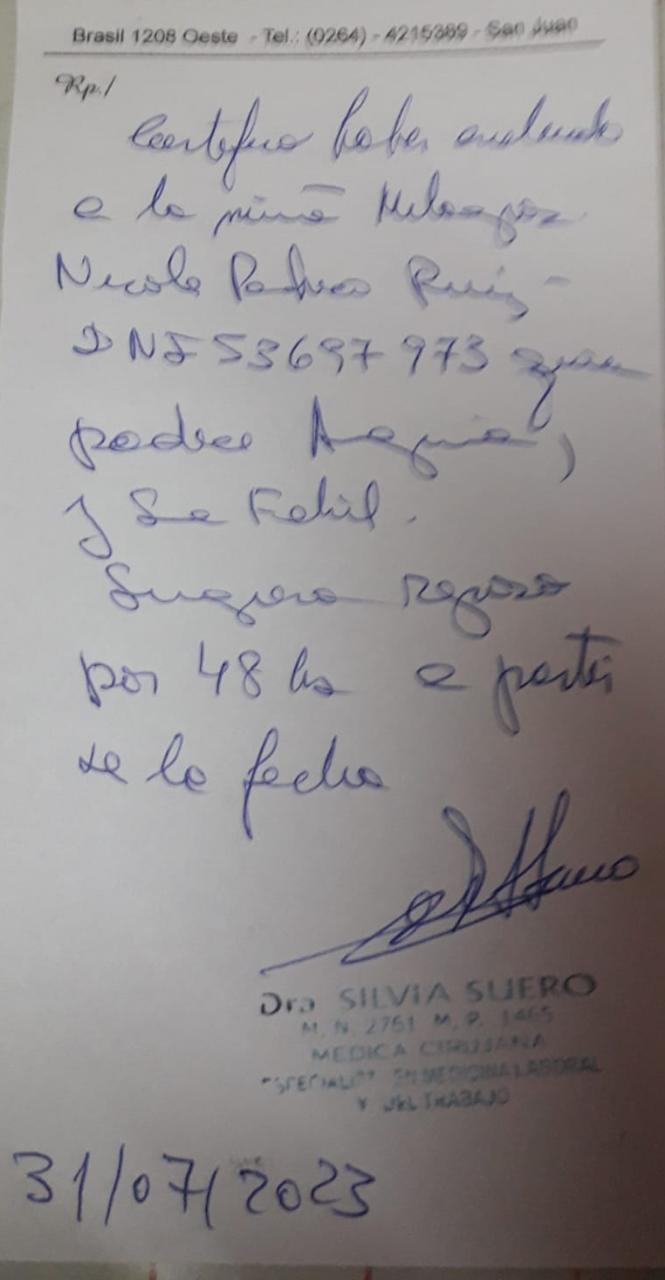 Brasil 1208 Oeste - Tel.: (0264) - 4215389 - San Juan
Rp./
Certifico haber
a la niña Milagros
Nicole Ruiz -
DNI 53697973 quien
padece Angina,
y Se Febril.
Sugiero reposo
por 48 hs a partir
de la fecha
Dra SILVIA SUERO
M. N. 2751 M. P. 1465
MEDICA CIRUJANA
ESPECIALIST EN MEDICINA LABORAL
Y DEL TRABAJO
31/07/2023